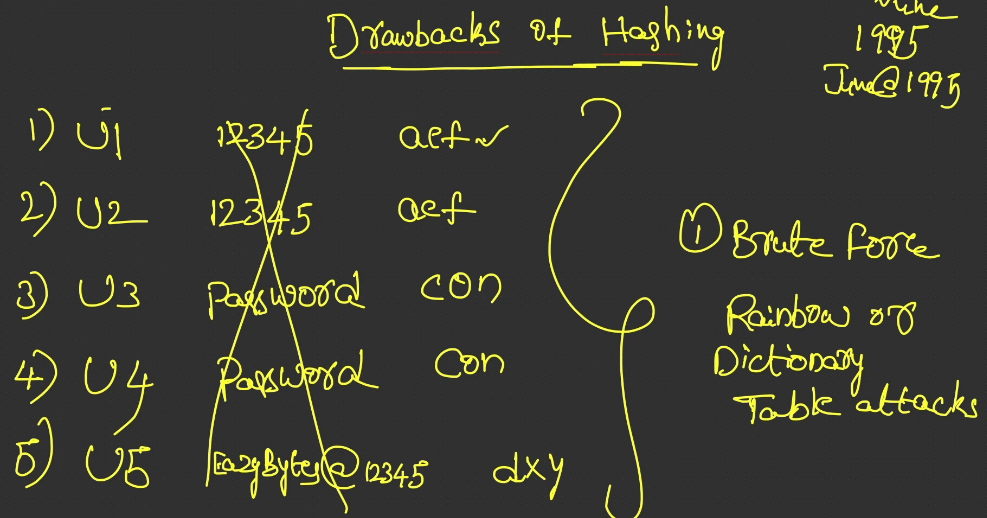 Drawbacks of Hashing
June
1995
June@1995
1) U1 12345 aef
2) U2 12345 aef
3) U3 Password con
4) U4 Password con
5) U5 EazyBytes@12345 dxy
① Brute force
Rainbow or
Dictionary
Table attacks